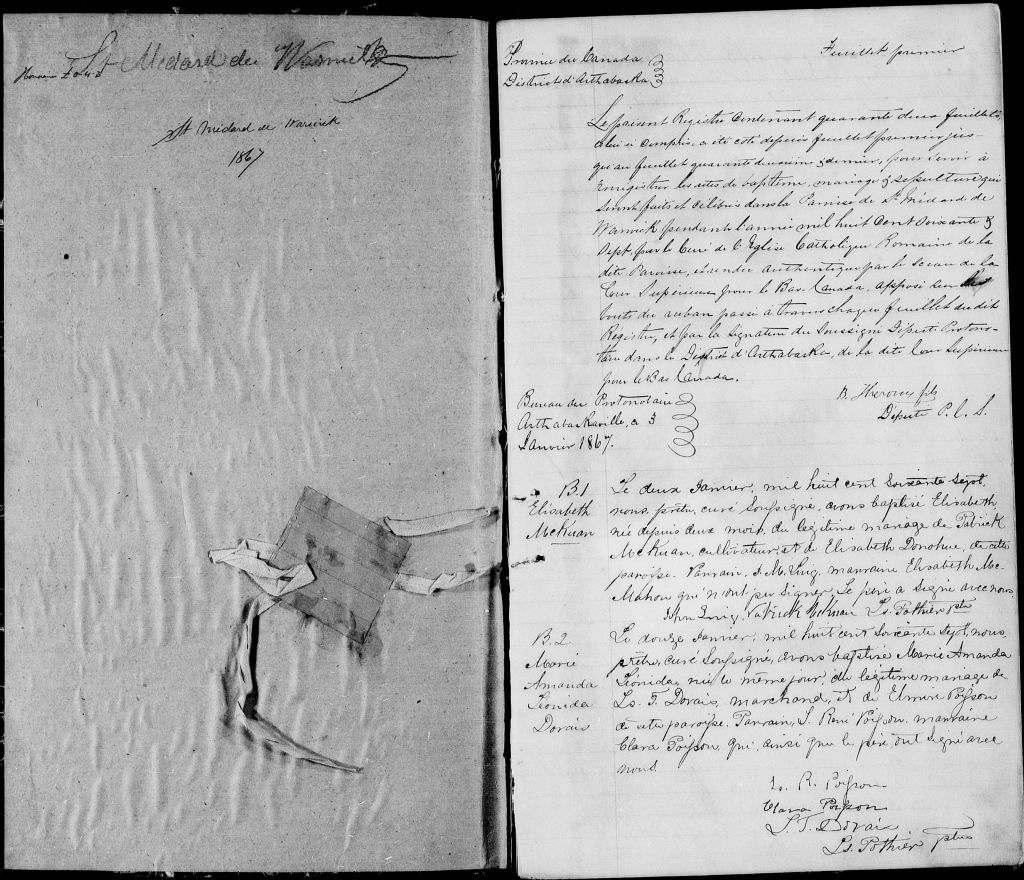 St Médard de Warwick
St Médard de Warwick
1867
Province du Canada
District d'Arthabaska
Feuillet premier
Le présent Registre contenant quarante deux feuillets,
celui ci compris, a été coté depuis feuillet premier jus-
qu'au feuillet quarante deuxième & dernier, pour servir à
Enregistrer les actes de baptême, mariage & sépulture qui
seront faits et célébrés dans la Paroisse de St Médard de
Warwick pendant l'année mil huit cent soixante &
sept, par le Curé de l'Eglise Catholique Romaine de la
dite Paroisse, et rendu authentique par le sceau de la
Cour Supérieure pour le Bas-Canada, apposé sur les
bouts du ruban passé à travers chaque feuillet du dit
Régistre, et par la signature du Soussigné Député Protono-
taire dans le District d'Arthabaska, de la dite Cour Supérieure
pour le Bas Canada.
Bureau du Protonotaire
Arthabaskaville, ce 3
Janvier 1867.
fils
Député P. C. S.
B.1
Elisabeth
McKuan
Le deux Janvier, mil huit cent soixante sept,
nous, prêtre, curé Soussigné, avons baptisé Elisabeth,
née depuis deux mois, du légitime mariage de Patrick
McKuan, cultivateur, et de Elisabeth Donohue, de cette
paroisse. Parrain, J. marraine Elisabeth Mc-
Mahon qui n'ont pu signer. Le père a signé avec nous.
Patrick McKuan Ls. Pothier Ptre
B.2
Marie
Amanda
Léonida
Dorais
Le douze Janvier, mil huit cent soixante sept, nous,
prêtre, curé Soussigné, avons baptisé Marie Amanda
Léonida, née le même jour, du légitime mariage de
Ls. T. Dorais, marchand, et de Elmire Poisson
de cette paroisse. Parrain, L. René Poisson, marraine
Clara Poisson, qui, ainsi que le père, ont signé avec
nous.
Ls. R. Poisson
Clara Poisson
L. T. Dorais
Ls. Pothier Ptre